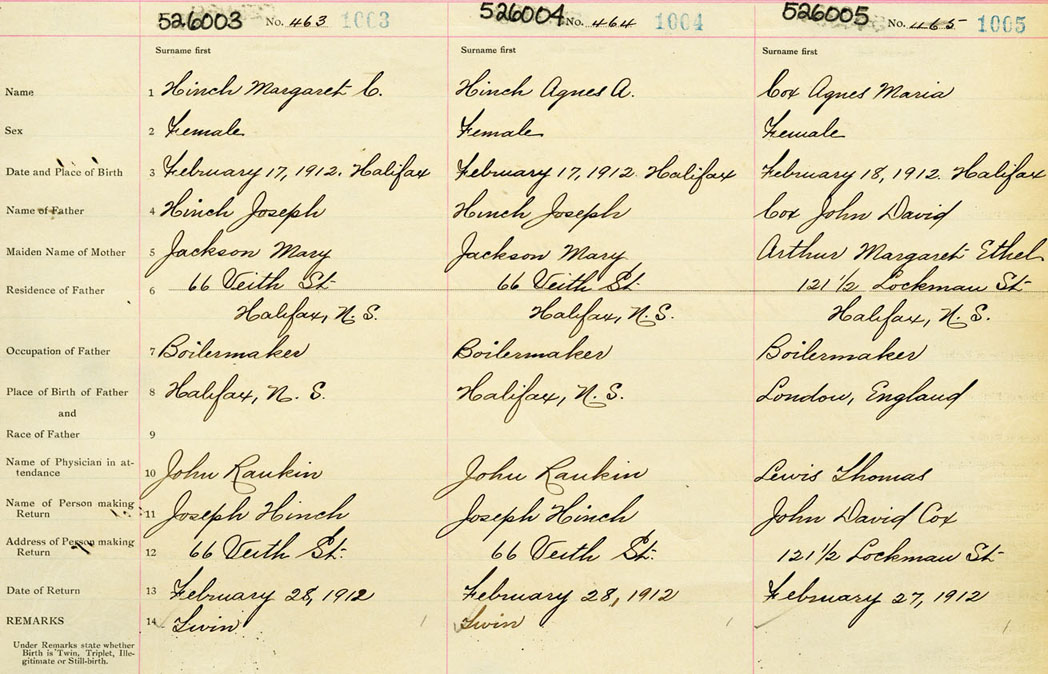 526003 No. 463 1003 526004 No. 464 1004 526005 No. 465 1005
Surname first Surname first Surname first
Name 1 Hinch Margaret C. Hinch Agnes A. Cox Agnes Maria
Sex 2 Female Female Female
Date and Place of Birth 3 February 17, 1912. Halifax February 17, 1912. Halifax February 18, 1912. Halifax
Name of Father 4 Hinch Joseph Hinch Joseph Cox John David
Maiden Name of Mother 5 Jackson Mary Jackson Mary Arthur Margaret Ethel
Residence of Father 6 66 Veith St. 66 Veith St. 121 1/2 Lockman St.
Halifax, N. S. Halifax, N. S. Halifax, N. S.
Occupation of Father 7 Boilermaker Boilermaker Boilermaker
Place of Birth of Father 8 Halifax, N. S. Halifax, N. S. London, England
and
Race of Father 9
Name of Physician in at-
tendance 10 John Rankin John Rankin Lewis Thomas
Name of Person making
Return 11 Joseph Hinch Joseph Hinch John David Cox
Address of Person making
Return 12 66 Veith St. 66 Veith St. 121 1/2 Lockman St.
Date of Return 13 February 28, 1912 February 28, 1912 February 27, 1912
REMARKS 14 Twin Twin
Under Remarks state whether
Birth is Twin, Triplet, Ille-
gitimate or Still-birth.